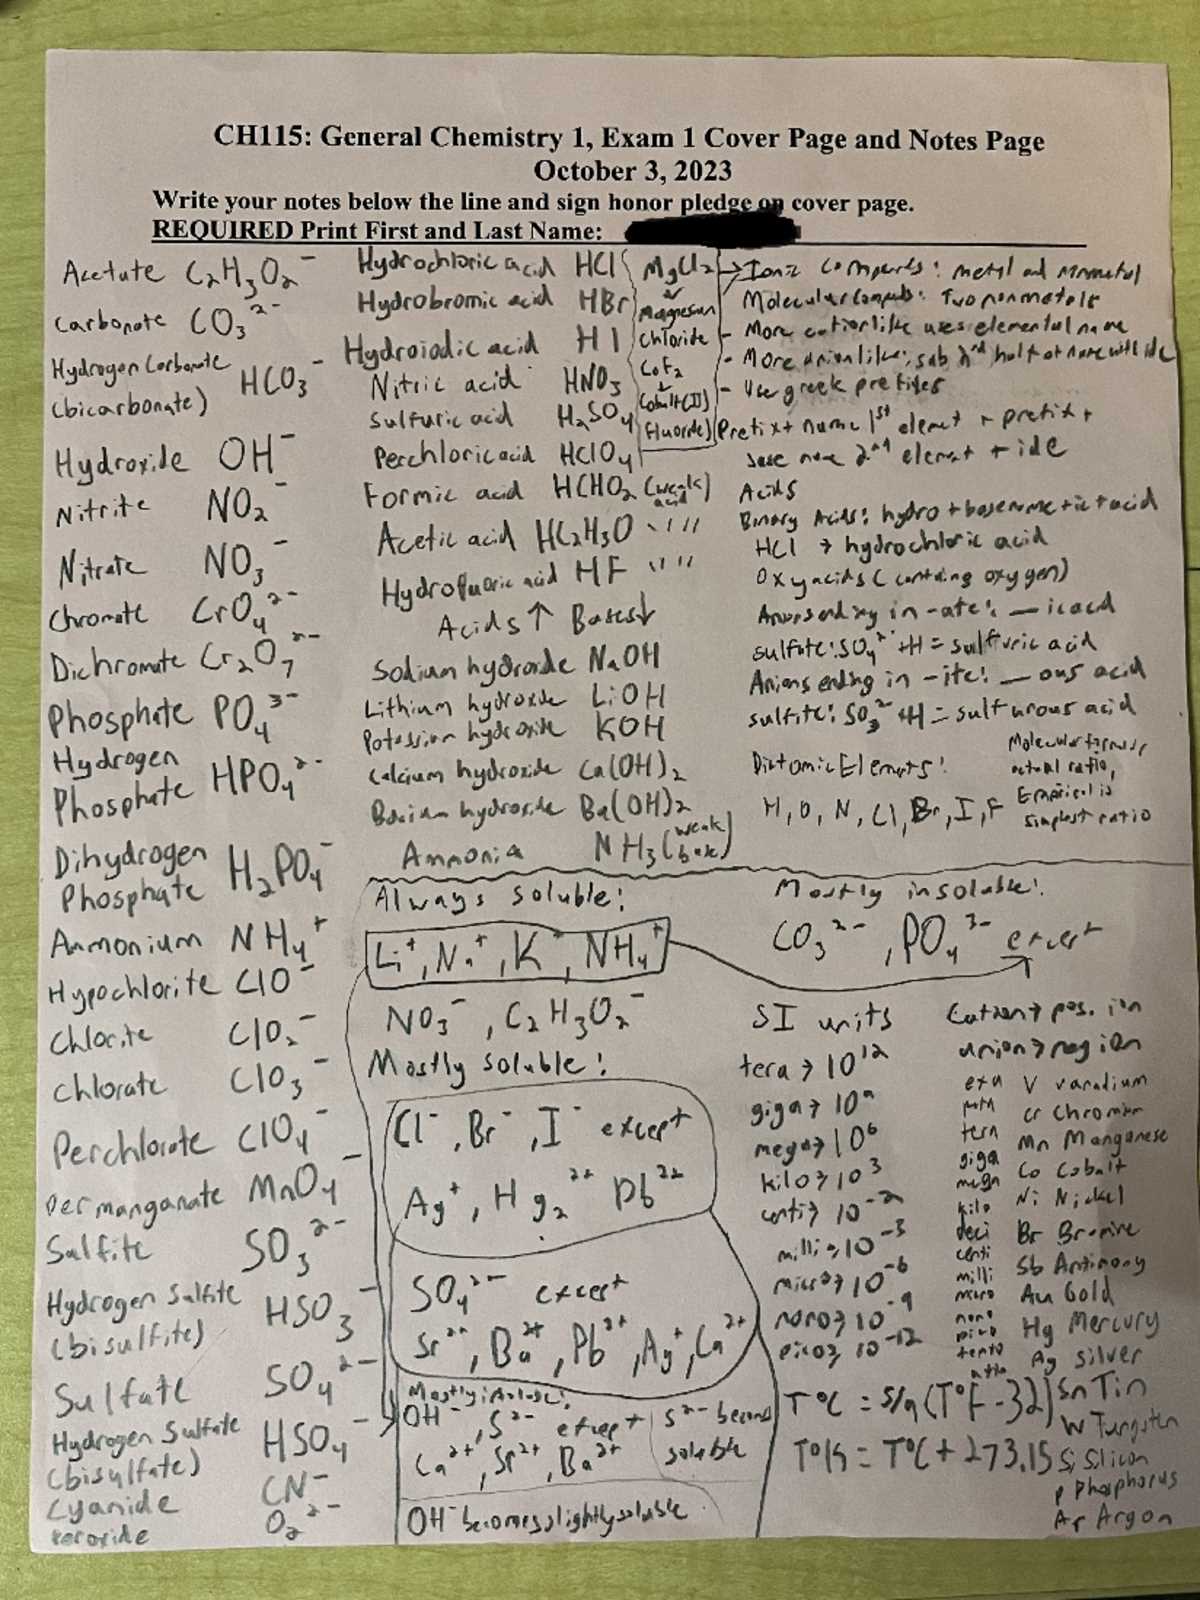 CH115: General Chemistry 1, Exam 1 Cover Page and Notes Page
October 3, 2023
Write your notes below the line and sign honor pledge on cover page.
REQUIRED Print First and Last Name:
Acetate C₂H₃O₂⁻
Carbonate CO₃²⁻
Hydrogen Carbonate
(bicarbonate) HCO₃⁻
Hydroxide OH⁻
Nitrite NO₂⁻
Nitrate NO₃⁻
Chromate CrO₄²⁻
Dichromate Cr₂O₇²⁻
Phosphate PO₄³⁻
Hydrogen
Phosphate HPO₄²⁻
Dihydrogen
Phosphate H₂PO₄⁻
Ammonium NH₄⁺
Hypochlorite ClO⁻
Chlorite ClO₂⁻
Chlorate ClO₃⁻
Perchlorate ClO₄⁻
Permanganate MnO₄⁻
Sulfite SO₃²⁻
Hydrogen Sulfite
(bisulfite) HSO₃⁻
Sulfate SO₄²⁻
Hydrogen Sulfate
(bisulfate) HSO₄⁻
Cyanide CN⁻
Peroxide O₂²⁻
Hydrochloric acid HCl
Hydrobromic acid HBr
Hydroiodic acid HI
Nitric acid HNO₃
Sulfuric acid H₂SO₄
Perchloric acid HClO₄
Formic acid HCHO₂ (weak acid)
Acetic acid HC₂H₃O " "
Hydrofluoric acid HF " "
Acids ↑ Bases ↓
Sodium hydroxide NaOH
Lithium hydroxide LiOH
Potassium hydroxide KOH
Calcium hydroxide Ca(OH)₂
Barium hydroxide Ba(OH)₂
Ammonia NH₃ (weak base)
MgCl₂
↓
Magnesium
Chloride
CoF₂
↓
Cobalt(II)
Fluoride
→ Ionic compounds: metal and nonmetal
Molecular Compounds: Two nonmetals
- More cation like uses elemental name
- More anion like: sub 2nd half of name with ide
- Use greek prefixes
Prefix + name 1st element + prefix +
base name 2nd element + ide
Acids
Binary Acids: hydro + base name + ic + acid
HCl → hydrochloric acid
Oxyacids (containing oxygen)
Anions ending in -ate: __ ic acid
sulfate: SO₄²⁻ + H = sulfuric acid
Anions ending in -ite: __ ous acid
sulfite: SO₃²⁻ + H = sulfurous acid
Diatomic Elements:
H, O, N, Cl, Br, I, F
Molecular formula,
actual ratio,
Empirical is
simplest ratio
Always soluble:
Li⁺, Na⁺, K⁺, NH₄⁺
NO₃⁻, C₂H₃O₂⁻
Mostly soluble:
Cl⁻, Br⁻, I⁻ except
Ag⁺, Hg₂²⁺ Pb²⁺
SO₄²⁻ except
Sr²⁺, Ba²⁺, Pb²⁺, Ag⁺, Ca²⁺
Mostly insoluble:
OH⁻, S²⁻ except
Ca²⁺, Sr²⁺, Ba²⁺
S²⁻ becomes
soluble
OH⁻ becomes slightly soluble
Mostly insoluble:
CO₃²⁻, PO₄³⁻ except
SI units
tera → 10¹²
giga → 10⁹
mega → 10⁶
kilo → 10³
centi → 10⁻²
milli → 10⁻³
micro → 10⁻⁶
nano → 10⁻⁹
pico → 10⁻¹²
T°C = 5/9 (T°F - 32)
T°K = T°C + 273.15
Cation → pos. ion
anion → neg ion
exa
peta
tera
giga
mega
kilo
deci
centi
milli
micro
nano
pico
femto
atto
V vanadium
Cr Chromium
Mn Manganese
Co Cobalt
Ni Nickel
Br Bromine
Sb Antimony
Au Gold
Hg Mercury
Ag Silver
Sn Tin
W Tungsten
Si Silicon
P Phosphorus
Ar Argon